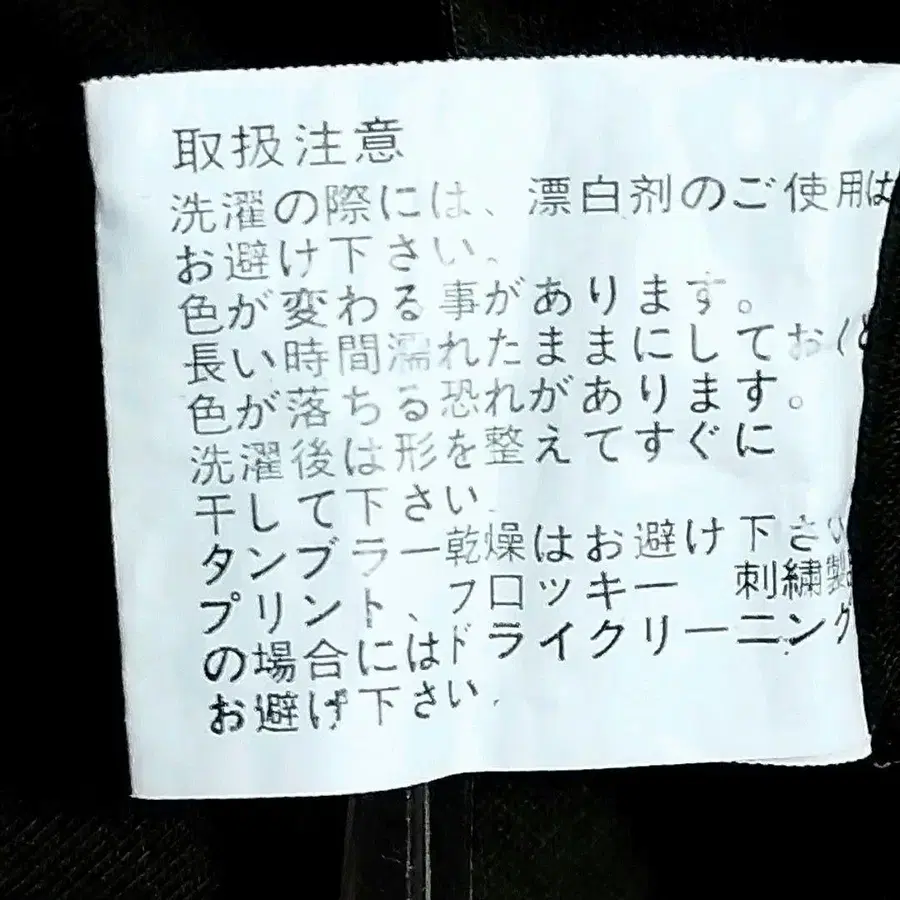 取扱注意
洗濯の際には、漂白剤のご使用は
お避け下さい、
色が変わる事があります。
長い時間濡れたままにしておくと
色が落ちる恐れがあります。
洗濯後は形を整えてすぐに
干して下さい
タンブラー乾燥はお避け下さい
プリント、フロッキー 刺繍製
の場合にはドライクリーニング
お避け下さい.